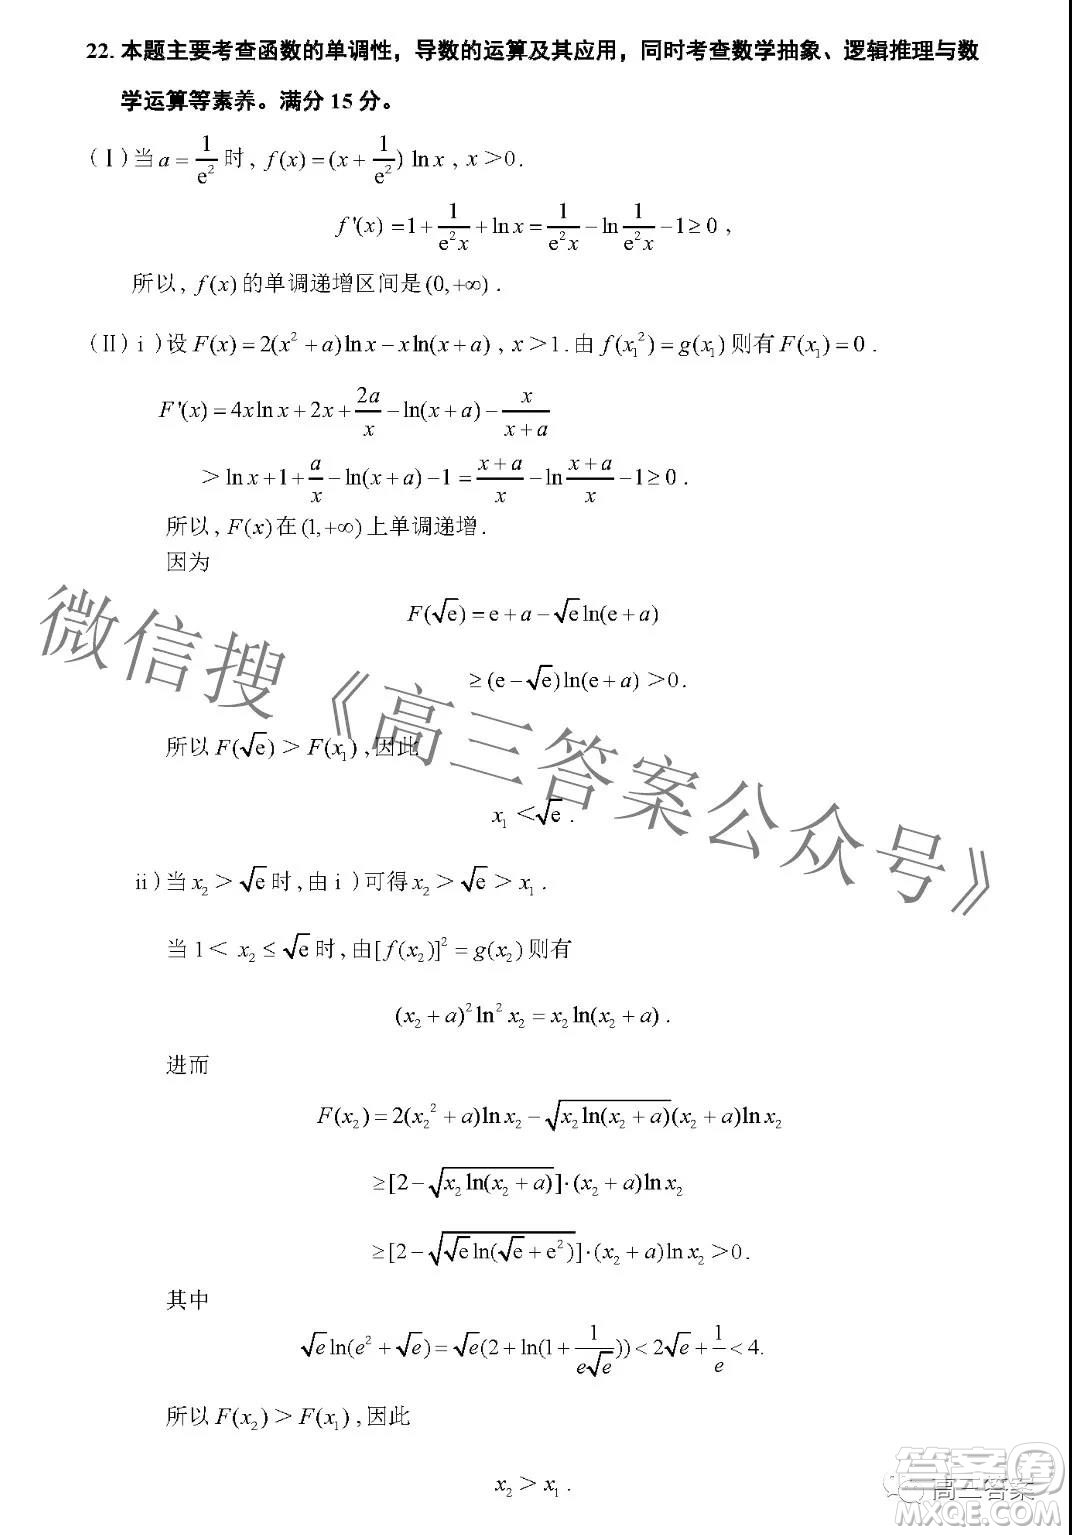 22. 本题主要考查函数的单调性，导数的运算及其应用，同时考查数学抽象、逻辑推理与数
学运算等素养。满分 15 分。
(Ⅰ) 当 a = 1/e² 时, f(x) = (x + 1/e²) ln x , x > 0 .
f'(x) = 1 + 1/(e²x) + ln x = 1/(e²x) − ln 1/(e²x) − 1 ≥ 0 ,
所以, f(x) 的单调递增区间是 (0, +∞) .
(II) i ) 设 F(x) = 2(x² + a)ln x − x ln(x + a) , x > 1 . 由 f(x₁²) = g(x₁) 则有 F(x₁) = 0 .
F'(x) = 4x ln x + 2x + 2a/x − ln(x + a) − x/(x + a)
> ln x + 1 + a/x − ln(x + a) − 1 = (x + a)/x − ln (x + a)/x − 1 ≥ 0 .
所以, F(x) 在 (1, +∞) 上单调递增 .
因为
F(√e) = e + a − √e ln(e + a)
≥ (e − √e)ln(e + a) > 0 .
所以 F(√e) > F(x₁) , 因此
x₁ < √e .
ii ) 当 x₂ > √e 时, 由 i ) 可得 x₂ > √e > x₁ .
当 1 < x₂ ≤ √e 时, 由 [f(x₂)]² = g(x₂) 则有
(x₂ + a)² ln² x₂ = x₂ ln(x₂ + a) .
进而
F(x₂) = 2(x₂² + a)ln x₂ − √(x₂ ln(x₂ + a))(x₂ + a)ln x₂
≥ [2 − √(x₂ ln(x₂ + a))]·(x₂ + a)ln x₂
≥ [2 − √(√e ln(√e + e²))]·(x₂ + a)ln x₂ > 0 .
其中
√e ln(e² + √e) = √e(2 + ln(1 + 1/(e√e))) < 2√e + 1/e < 4.
所以 F(x₂) > F(x₁) , 因此
x₂ > x₁ .
微信搜《高三答案公众号》
答案卷
高三答案
MXQE.COM